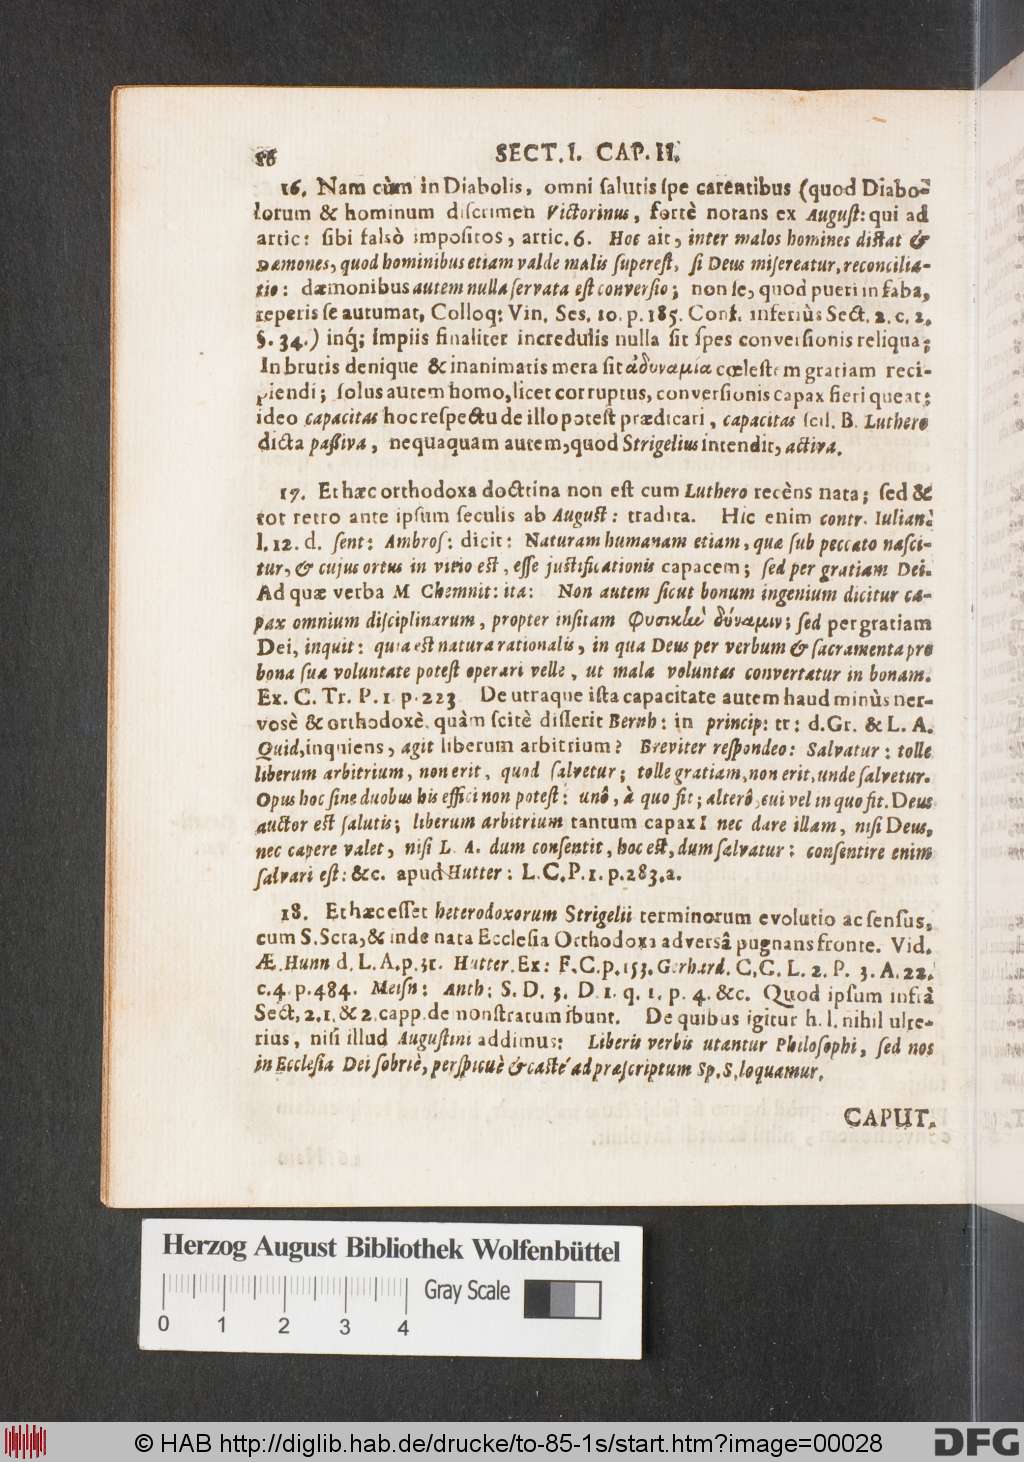 SECT. I. CAP. II.
16. Nam cùm in Diabolis, omni salutis spe carentibus (quod Diabo-
lorum & hominum discrimen Victorinus, fortè notans ex August: qui ad
artic: sibi falsò impositos, artic. 6. Hoc ait, inter malos homines distat &
Dæmones, quod hominibus etiam valde malis superest, si Deus misereatur, reconcilia-
tio: dæmonibus autem nulla servata est conversio; non se, quod pueri in faba,
reperisse autumat, Colloq: Vin. Ses. 10. p. 185. Conf. inferiùs Sect. 2. c. 2.
§. 34.) inq́; impiis finaliter incredulis nulla sit spes conversionis reliqua;
In brutis denique & inanimatis mera sit ἀδυναμία cœlestem gratiam reci-
piendi; solus autem homo, licet corruptus, conversionis capax fieri queat;
ideo capacitas hoc respectu de illo potest prædicari, capacitas scil. B. Luthero
dicta passiva, nequaquam autem, quod Strigelius intendit, activa.
17. Et hæc orthodoxa doctrina non est cum Luthero recèns nata; sed &
tot retro ante ipsum seculis ab August: tradita. Hic enim contr. Iulian:
l. 12. d. sent: Ambros: dicit: Naturam humanam etiam, quæ sub peccato nasci-
tur, & cujus ortus in vitio est, esse justificationis capacem; sed per gratiam Dei.
Ad quæ verba M Chemnit: ita: Non autem sicut bonum ingenium dicitur ca-
pax omnium disciplinarum, propter insitam Φυσικὴν δύναμιν; sed per gratiam
Dei, inquit: quia est natura rationalis, in qua Deus per verbum & sacramenta pro
bona sua voluntate potest operari velle, ut mala voluntas convertatur in bonam.
Ex. C. Tr. P. 1. p. 223 De utraque ista capacitate autem haud minùs ner-
vosè & orthodoxè, quàm scitè disserit Bernh: in princip: tr: d. Gr. & L. A.
Quid, inquiens, agit liberum arbitrium? Breviter respondeo: Salvatur: tolle
liberum arbitrium, non erit, quod salvetur; tolle gratiam, non erit, unde salvetur.
Opus hoc sine duobus his effici non potest: unô, à quo fit; alterô, cui vel in quo fit. Deus
auctor est salutis; liberum arbitrium tantum capax! nec dare illam, nisi Deus,
nec capere valet, nisi L. A. dum consentit, hoc est, dum salvatur: consentire enim
salvari est: &c. apud Hutter: L. C. P. 1. p. 283. 2.
18. Et hæc esset heterodoxorum Strigelii terminorum evolutio ac sensus,
cum S. Scra, & inde nata Ecclesia Orthodoxa adversâ pugnans fronte. Vid.
Æ. Hunn d. L. A. p. 31. Hutter. Ex: F. C. p. 153. Gerhard. C. C. L. 2. P. 3. A. 22.
c. 4. p. 484. Meisn: Anth: S. D. 3. D 1. q. 1. p. 4. &c. Quod ipsum infrà
Sect, 2. 1. & 2. capp. demonstratum ibunt. De quibus igitur h. l. nihil ulte-
rius, nisi illud Augustini addimus: Liberis verbis utantur Philosophi, sed nos
in Ecclesia Dei sobriè, perspicuè & castè ad præscriptum Sp. S. loquamur.
CAPUT.
Herzog August Bibliothek Wolfenbüttel
Gray Scale
0 1 2 3 4
© HAB http://diglib.hab.de/drucke/to-85-1s/start.htm?image=00028
DFG